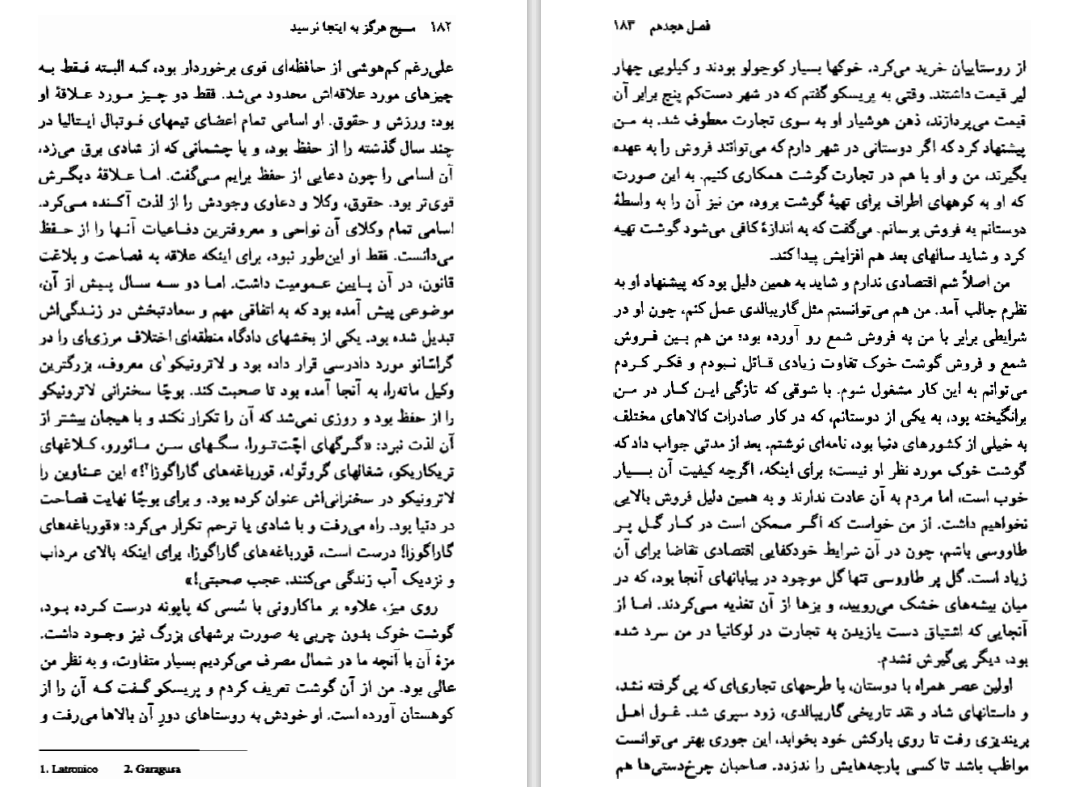 ۱۸۲ مسیح هرگز به اینجا نرسید
علی‌رغم کم‌هوشی از حافظه‌ای قوی برخوردار بود، کـه البته فـقط بـه
چیزهای مورد علاقه‌اش محدود می‌شد. فقط دو چیـز مـورد عـلاقهٔ او
بود: ورزش و حقوق. او اسامی تمام اعضای تیمهای فـوتبال ایـتالیا در
چند سال گذشته را از حفظ بود، و با چشمانی که از شادی برق می‌زد،
آن اسامی را چون دعایی از حفظ برایم مـی‌گفت. امـا عـلاقهٔ دیگـرش
قوی‌تر بود. حقوق، وکلا و دعاوی وجودش را از لذت آکـنده مـی‌کرد.
اسامی تمام وکلای آن نواحی و معروفترین دفـاعیات آنـها را از حـفظ
می‌دانست. فقط او این‌طور نبود، برای اینکه علاقه به فصاحت و بلاغت
قانون، در آن پایین عـمومیت داشت. امـا دو سـه سـال پـیش از آن،
موضوعی پیش آمده بود که به اتفاقی مهم و سعادتبخش در زنـدگی‌اش
تبدیل شده بود. یکی از بخشهای دادگاه منطقه‌ای اختلاف مرزی‌ای را در
گراسّانو مورد دادرسی قرار داده بود و لاترونیکو۱ی معروف، بزرگترین
وکیل ماته‌را، به آنجا آمده بود تا صحبت کند. بوچّا سخنرانی لاترونیکو
را از حفظ بود و روزی نمی‌شد که آن را تکرار نکند و با هیجان بیشتر از
آن لذت نبرد: «گـرگهای اچّـت‌تـورا، سگـهای سـن مـائورو، کـلاغهای
تریکاریکو، شغالهای گروتّوله، قورباغه‌های گاراگوزا۲!» این عـناوین را
لاترونیکو در سخنرانی‌اش عنوان کرده بود. و برای بوچّا نهایت فصاحت
در دنیا بود. راه می‌رفت و با شادی یا ترحم تکرار می‌کرد: «قورباغه‌های
گاراگوزا! درست است، قورباغه‌های گاراگوزا، برای اینکه بالای مرداب
و نزدیک آب زندگی می‌کنند. عجب صحبتی!»
روی میز، علاوه بر ماکارونی با سُسی که پاپونه درست کـرده بـود،
گوشت خوک بدون چربی به صورت برشهای بزرگ نیز وجـود داشت.
مزهٔ آن با آنچه ما در شمال مصرف می‌کردیم بسیار متفاوت، و به نظر من
عالی بود. من از آن گوشت تعریف کردم و پریسکو گـفت کـه آن را از
کوهستان آورده است. او خودش به روستاهای دورِ آن بالاها می‌رفت و
1. Latronico 2. Garagusa
فصل هجدهم ۱۸۳
از روستاییان خرید می‌کرد. خوکها بسیار کوچولو بودند و کیلویی چهار
لیر قیمت داشتند. وقتی به پریسکو گفتم که در شهر دست‌کم پنج برابر آن
قیمت می‌پردازند، ذهن هوشیار او به سوی تجارت معطوف شد. به مـن
پیشنهاد کرد که اگر دوستانی در شهر دارم که می‌توانند فروش را به عهده
بگیرند، من و او با هم در تجارت گوشت همکاری کنیم. به این صورت
که او به کوههای اطراف برای تهیهٔ گوشت برود، من نیز آن را به واسطهٔ
دوستانم به فروش برسانم. می‌گفت که به اندازهٔ کافی می‌شود گوشت تهیه
کرد و شاید سالهای بعد هم افزایش پیدا کند.
من اصلاً شم اقتصادی ندارم و شاید به همین دلیل بود که پیشنهاد او به
نظرم جالب آمد. من هم می‌توانستم مثل گاریبالدی عمل کنم، چون او در
شرایطی برابر با من به فروش شمع رو آورده بود؛ من هم بـین فـروش
شمع و فروش گوشت خوک تفاوت زیادی قـائل نـبودم و فکـر کـردم
می‌توانم به این کار مشغول شوم. با شوقی که تازگی ایـن کـار در مـن
برانگیخته بود، به یکی از دوستانم، که در کار صادرات کالاهای مختلف
به خیلی از کشورهای دنیا بود، نامه‌ای نوشتم. بعد از مدتی جواب داد که
گوشت خوک مورد نظر او نیست؛ برای اینکه، اگرچه کیفیت آن بسـیار
خوب است، اما مردم به آن عادت ندارند و به همین دلیل فروش بالایی
نخواهیم داشت. از من خواست که اگـر مـمکن است در کـار گـل پـر
طاووسی باشم، چون در آن شرایط خودکفایی اقتصادی تقاضا برای آن
زیاد است. گل پر طاووسی تنها گل موجود در بیابانهای آنجا بود، که در
میان بیشه‌های خشک می‌رویید، و بزها از آن تغذیه مـی‌کردند. امـا از
آنجایی که اشتیاق دست یازیدن به تجارت در لوکانیا در من سرد شده
بود، دیگر پی‌گیرش نشدم.
اولین عصر همراه با دوستان، با طرحهای تجاری‌ای که پی گرفته نشد،
و داستانهای شاد و نقد تاریخی گاریبالدی، زود سپری شد. غـول اهـل
بریندیزی رفت تا روی بارکش خود بخوابد، این جوری بهتر می‌توانست
مواظب باشد تا کسی پارچه‌هایش را ندزدد. صاحبان چرخ‌دستی‌ها هم